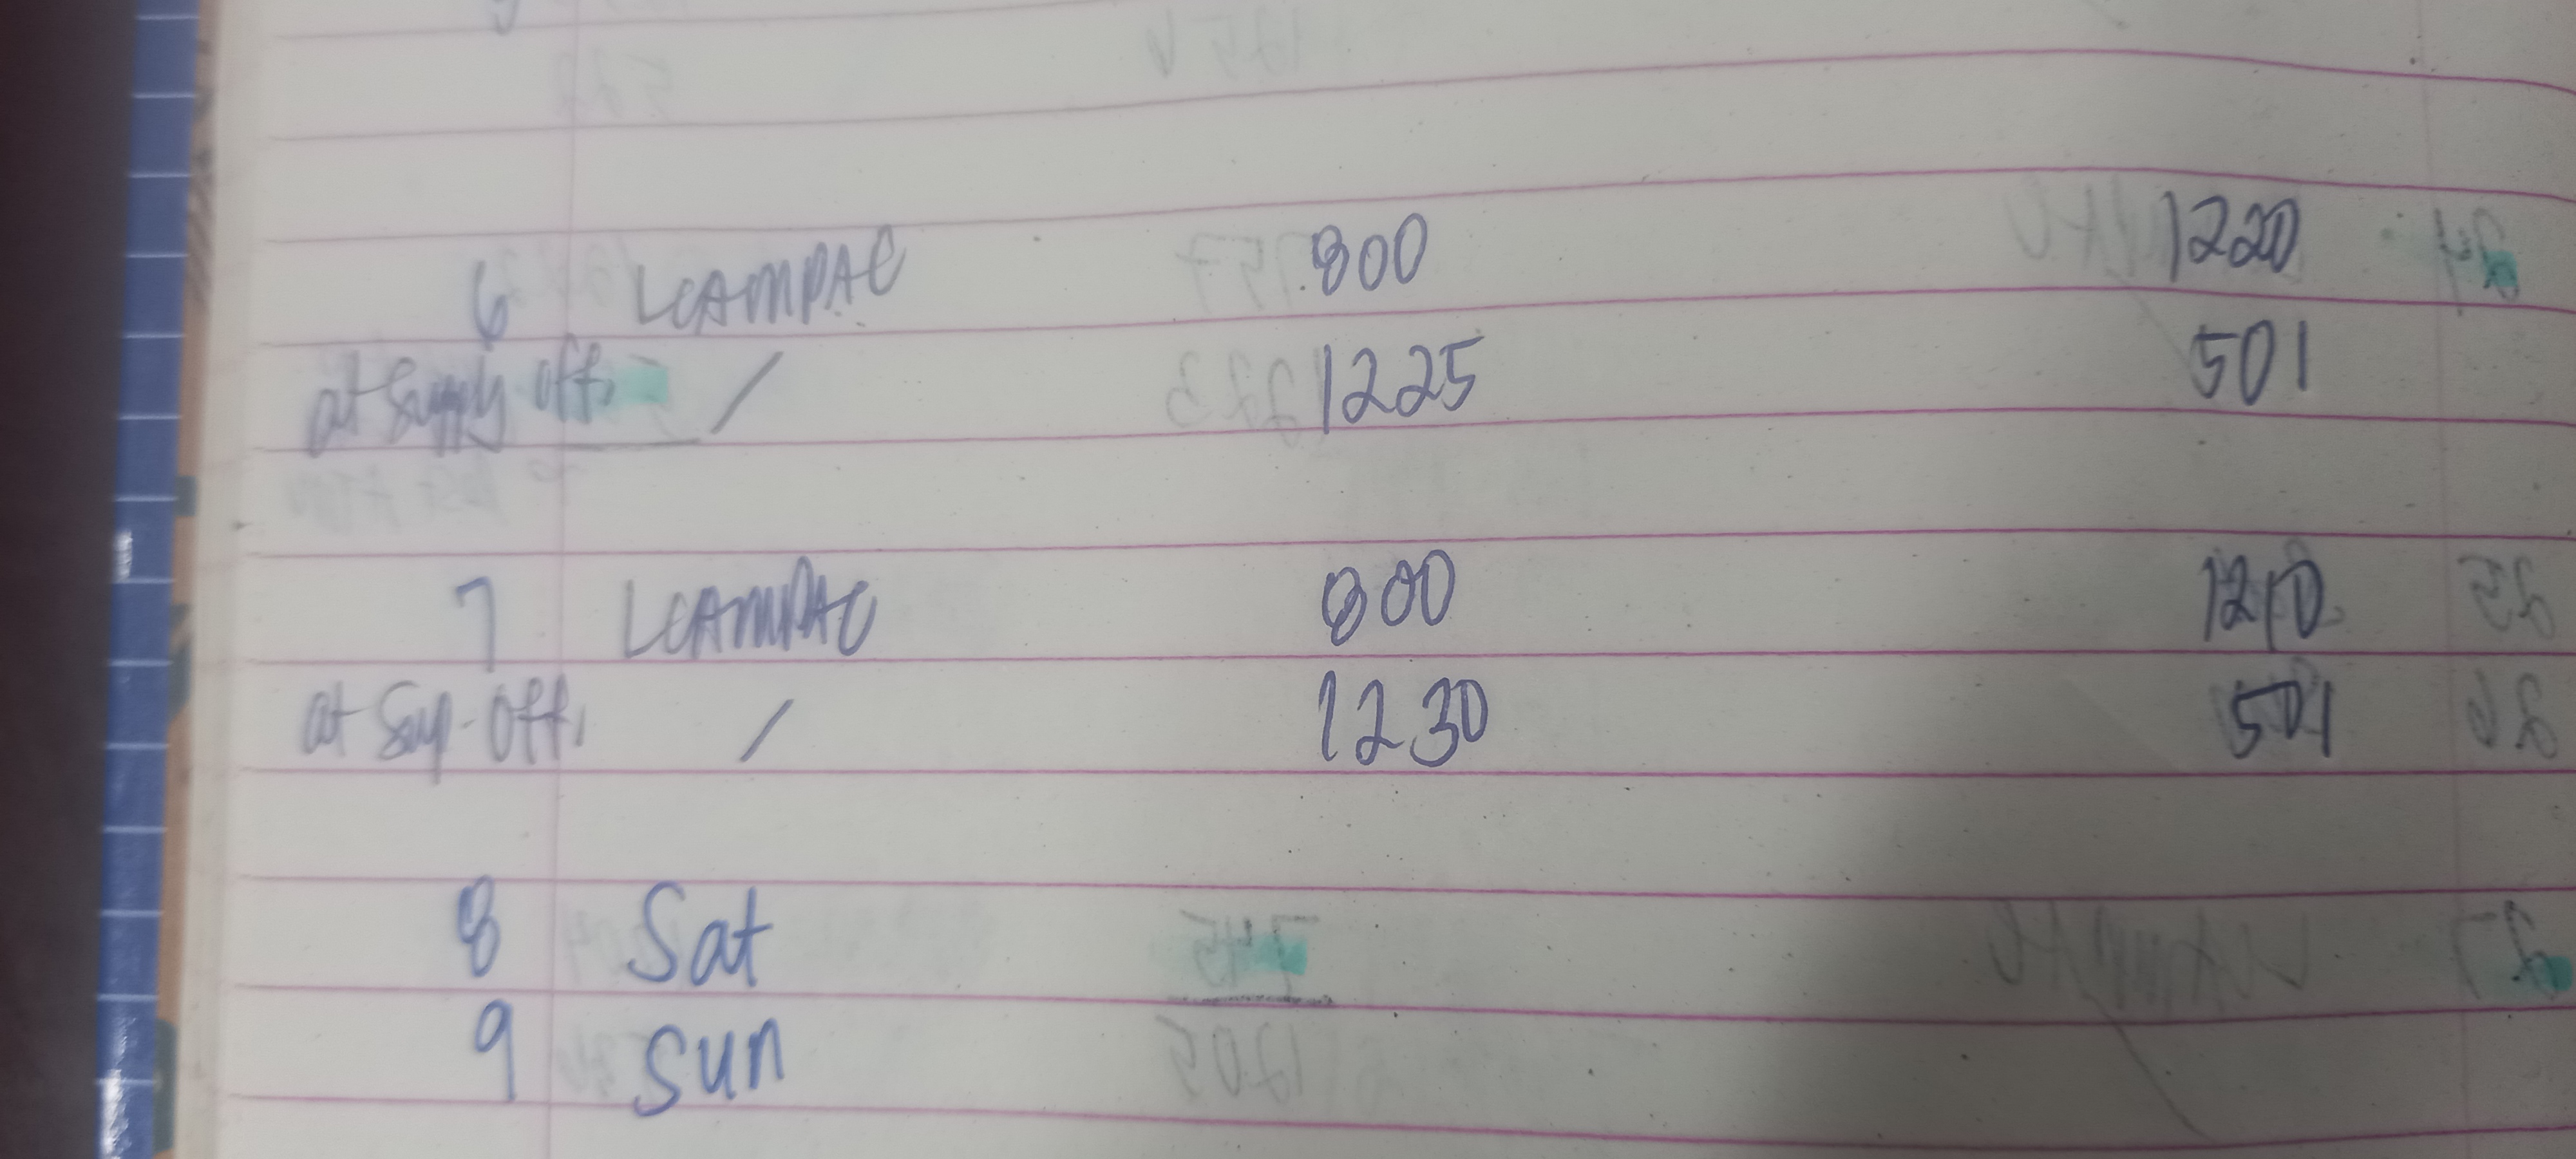 6 LCAMPAC 800 1220
at Supply Off. / 1225 501
7 LCAMPAC 800 1210
at Sup. Off. / 1230 501
8 Sat
9 Sun